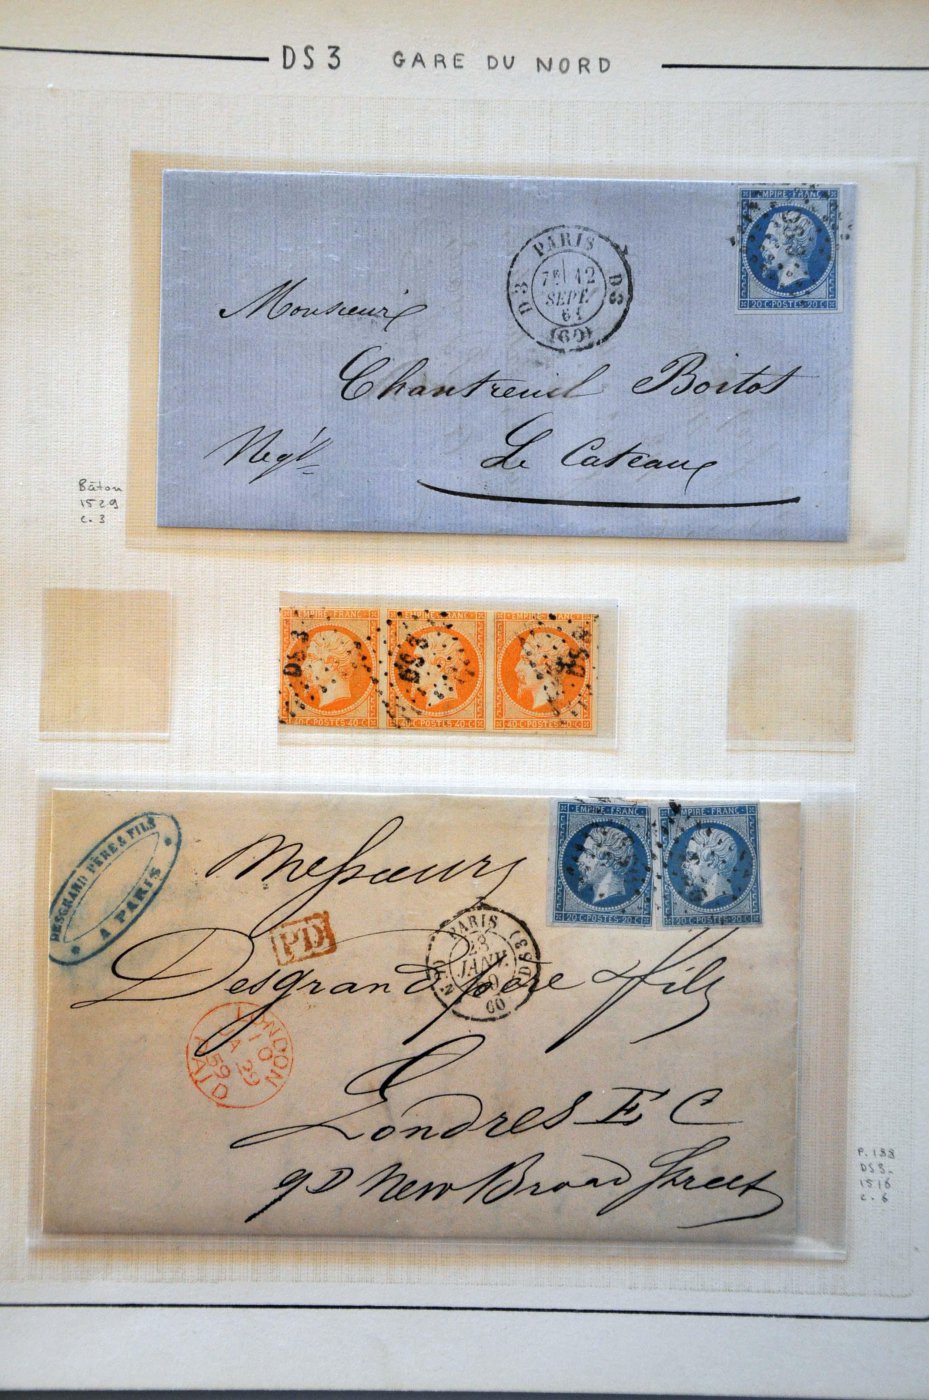 DS3 GARE DU NORD
EMPIRE FRANC
20 C POSTES 20 C
PARIS
7E 12
SEPT
61
(60)
D3 D3
Monsieur
Chantreuil Boitot
Negt
Le Cateau
Bâton
1529
c. 3
EMPIRE FRANC EMPIRE FRANC EMPIRE FRANC
DS3 DS3 DS3
40 C POSTES 40 C 40 C POSTES 40 C 40 C POSTES 40 C
DESGRAND PÈRE & FILS
A PARIS
EMPIRE FRANC EMPIRE FRANC
20 C POSTES 20 C 20 C POSTES 20 C
Messieurs
PD
PARIS (DS3)
28
JANV.
60
Desgrand Père & fils
LONDON
10
A 29
59
PAID
Londres E C
9D New Broad Street
P. 188
DS3-
1516
c. 6